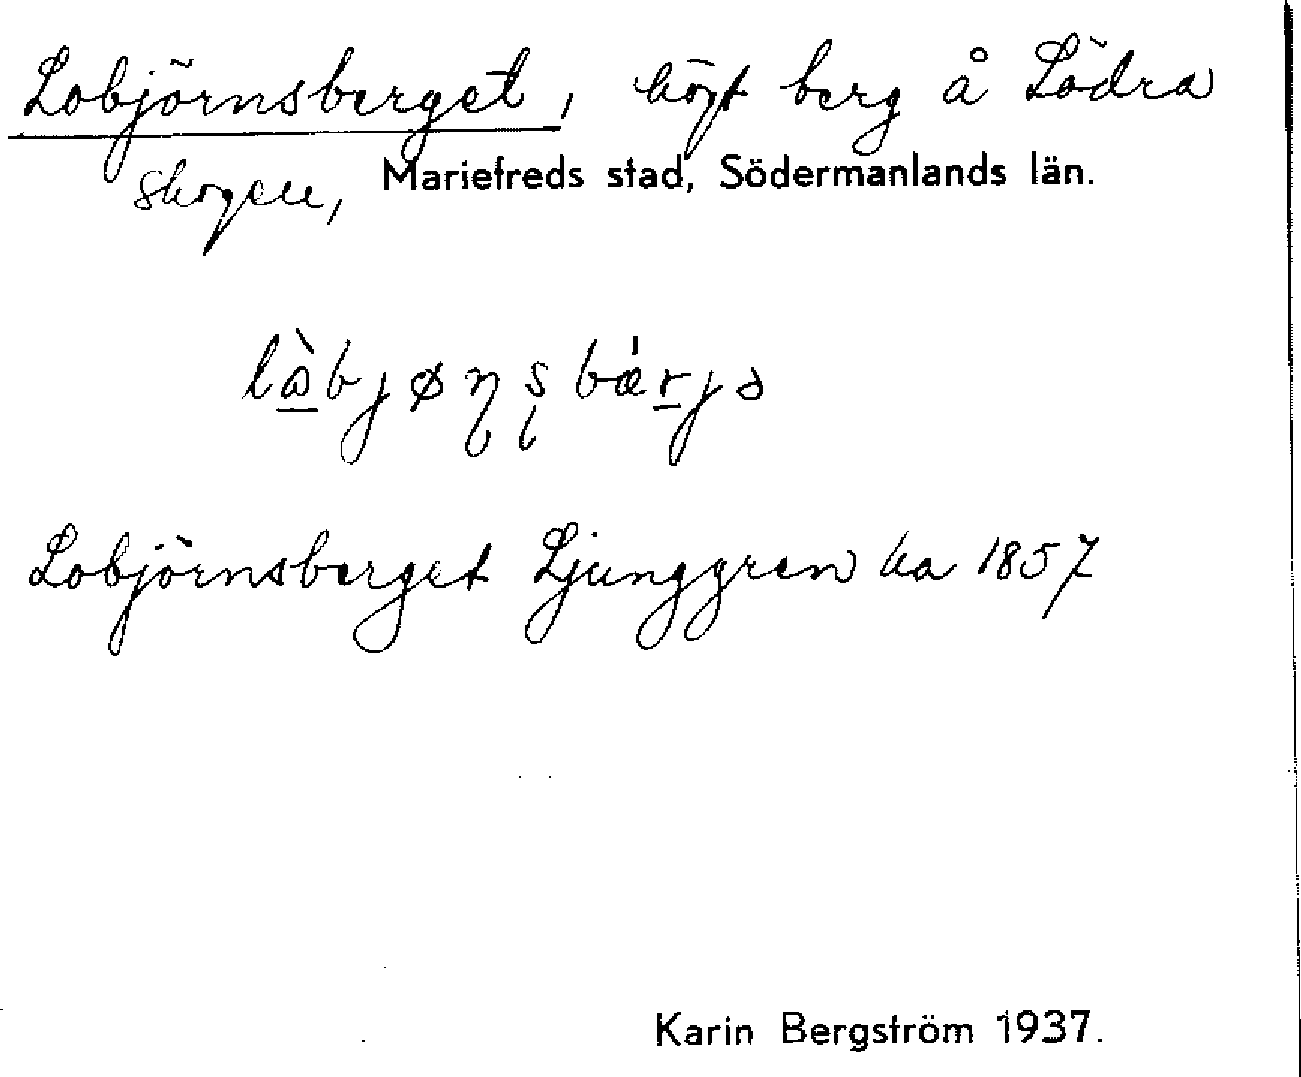 Lobjörnsberget, högt berg å Södra
skogen, Mariefreds stad, Södermanlands län.
Lobjörnsberget Ljunggren ka 1857
Karin Bergström 1937.